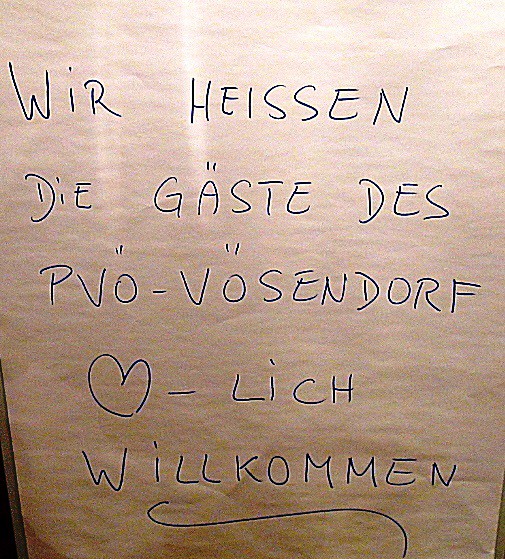 WiR HEISSEN
DiE GÄSTE DES
PVÖ-VÖSENDORF
♡-LiCH
WiLLKOMMEN